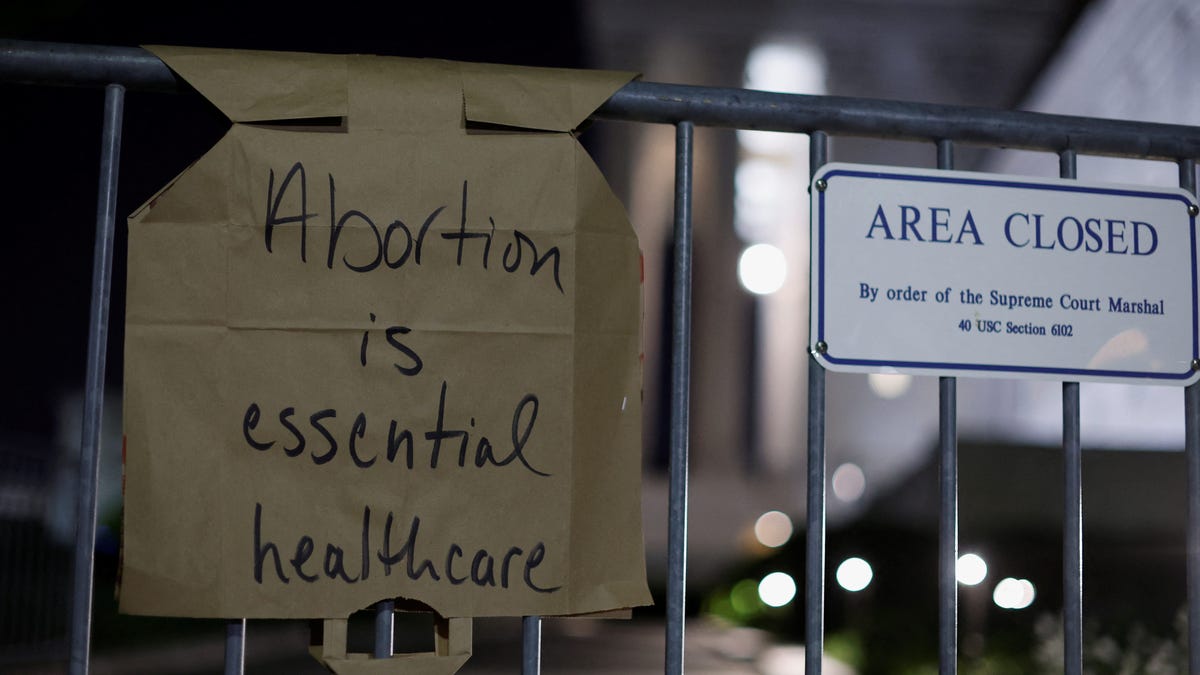 Abortion
is
essential
healthcare
AREA CLOSED
By order of the Supreme Court Marshal
40 USC Section 6102